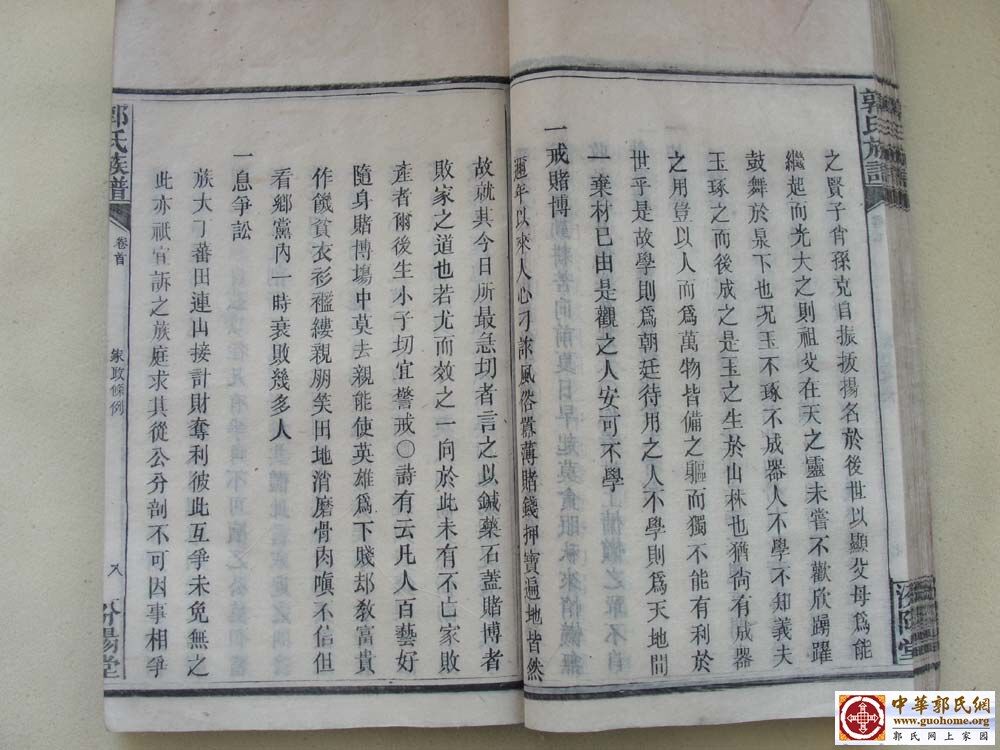 郭氏族譜
卷首
之賢子肖孫克自振拔揚名於後世以顯父母爲能
繼起而光大之則祖父在天之靈未嘗不歡欣踴躍
鼓舞於泉下也况玉不琢不成器人不學不知義夫
玉琢之而後成之是玉之生於山林也猶尚有成器
之用豈以人而爲萬物皆備之軀而獨不能有利於
世乎是故學則爲朝廷待用之人不學則爲天地間
一棄材已由是觀之人安可不學
一戒賭博
邇年以來人心刁詐風俗囂薄賭錢押寶遍地皆然
故就其今日所最急切者言之以鍼藥石蓋賭博者
敗家之道也若尤而效之一向於此未有不亡家敗
產者爾後生小子切宜警戒○詩有云凡人百藝好
隨身賭博塲中莫去親能使英雄爲下賤却教富貴
作饑貧衣衫襤縷親朋笑田地消磨骨肉嗔不信但
看鄉黨內一時衰敗幾多人
一息爭訟
族大丁蕃田連山接計財奪利彼此互爭未免無之
此亦祇宜訴之族庭求其從公分剖不可因事相爭
郭氏族譜
卷首
家政條例
八
汾陽堂
中華郭氏網
www.guohome.org
郭氏网上家园